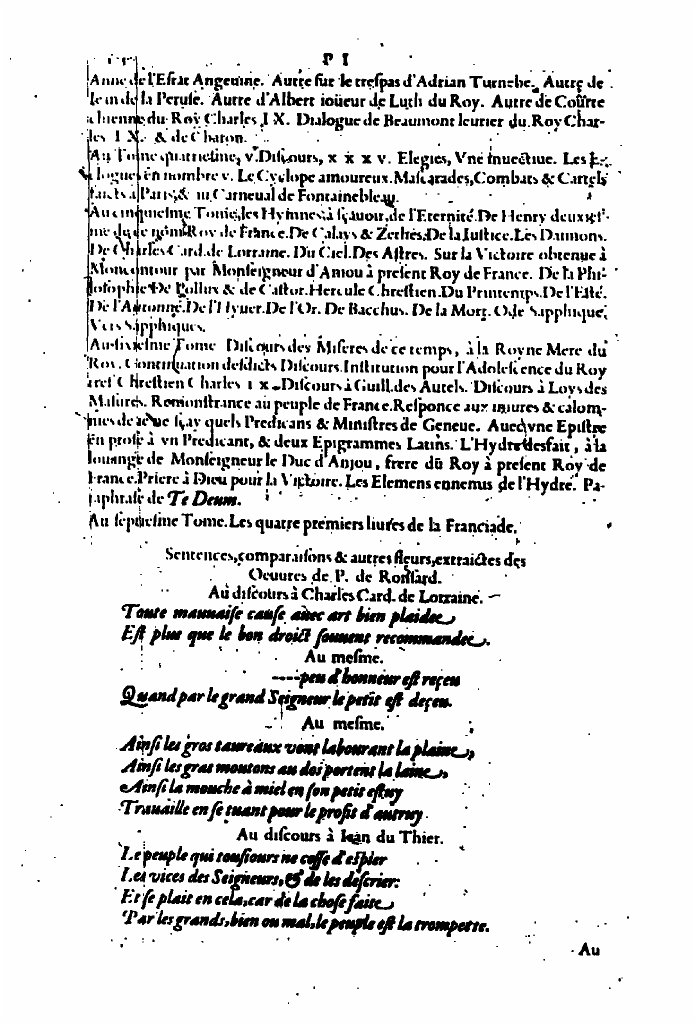 P I
Anne de l'Estat Angeuine. Autre sur le trespas d'Adrian Turnebe. Autre de
Iean de la Peruse. Autre d'Albert ioüeur de Luth du Roy. Autre de Courte
chienne du Roy Charles IX. Dialogue de Beaumont leurier du Roy Char-
les IX. & de Charon.
Au Tome quatriesme, v. Discours, x x x v. Elegies, Vne inuectiue. Les E-
clogues en nombre v. Le Cyclope amoureux. Mascarades, Combats & Cartels
faicts à Paris, & au Carneual de Fontainebleau.
Au cinquiesme Tome, les Hymnes, à sçauoir, de l'Eternité. De Henry deuxies-
me de ce nom Roy de France. De Calays & Zethes. De la Iustice. Les Daimons.
De Charles Card. de Lorraine. Du Ciel. Des Astres. Sur la Victoire obtenue à
Moncontour par Monseigneur d'Aniou à present Roy de France. De la Phi-
losophie De Pollux & de Castor. Hercule Chrestien. Du Printemps. De l'Esté.
De l'Autonne. De l'Hyuer. De l'Or. De Bacchus. De la Mort. Ode Sapphique,
Vers Sapphiques.
Au sixiesme Tome Discours des Miseres de ce temps, à la Royne Mere du
Roy. Continuation desdicts Discours. Institution pour l'Adolescence du Roy
tresChrestien Charles I X. Discours à Guill. des Autels. Discours à Loys des
Masures. Remonstrance au peuple de France. Responce aux iniures & calom-
nies de ie ne sçay quels Predicans & Ministres de Geneue. Auec vne Epistre
en prose à vn Predicant, & deux Epigrammes Latins. L'Hydre desfait, à la
louange de Monseigneur le Duc d'Anjou, frere du Roy à present Roy de
France. Priere à Dieu pour la Victoire. Les Elemens ennemis de l'Hydre. Pa-
raphrase de Te Deum.
Au septiesme Tome. Les quatre premiers liures de la Franciade.
Sentences, comparaisons & autres fleurs, extraictes des
Oeuures de P. de Ronsard.
Au discours à Charles Card. de Lorraine.
Toute mauuaise cause auec art bien plaidee
Est plus que le bon droict souuent recommandee.
Au mesme.
----peu d'honneur est reçeu
Quand par le grand Seigneur le petit est deçeu.
Au mesme.
Ainsi les gros taureaux vont labourant la plaine,
Ainsi les gras moutons au dos portent la laine,
Ainsi la mouche à miel en son petit estuy
Trauaille en se tuant pour le profit d'autruy
Au discours à Iean du Thier.
Le peuple qui tousiours ne cesse d'espier
Les vices des Seigneurs, & de les descrier:
Et se plait en cela, car de la chose faite
Par les grands, bien ou mal, le peuple est la trompette.
Au